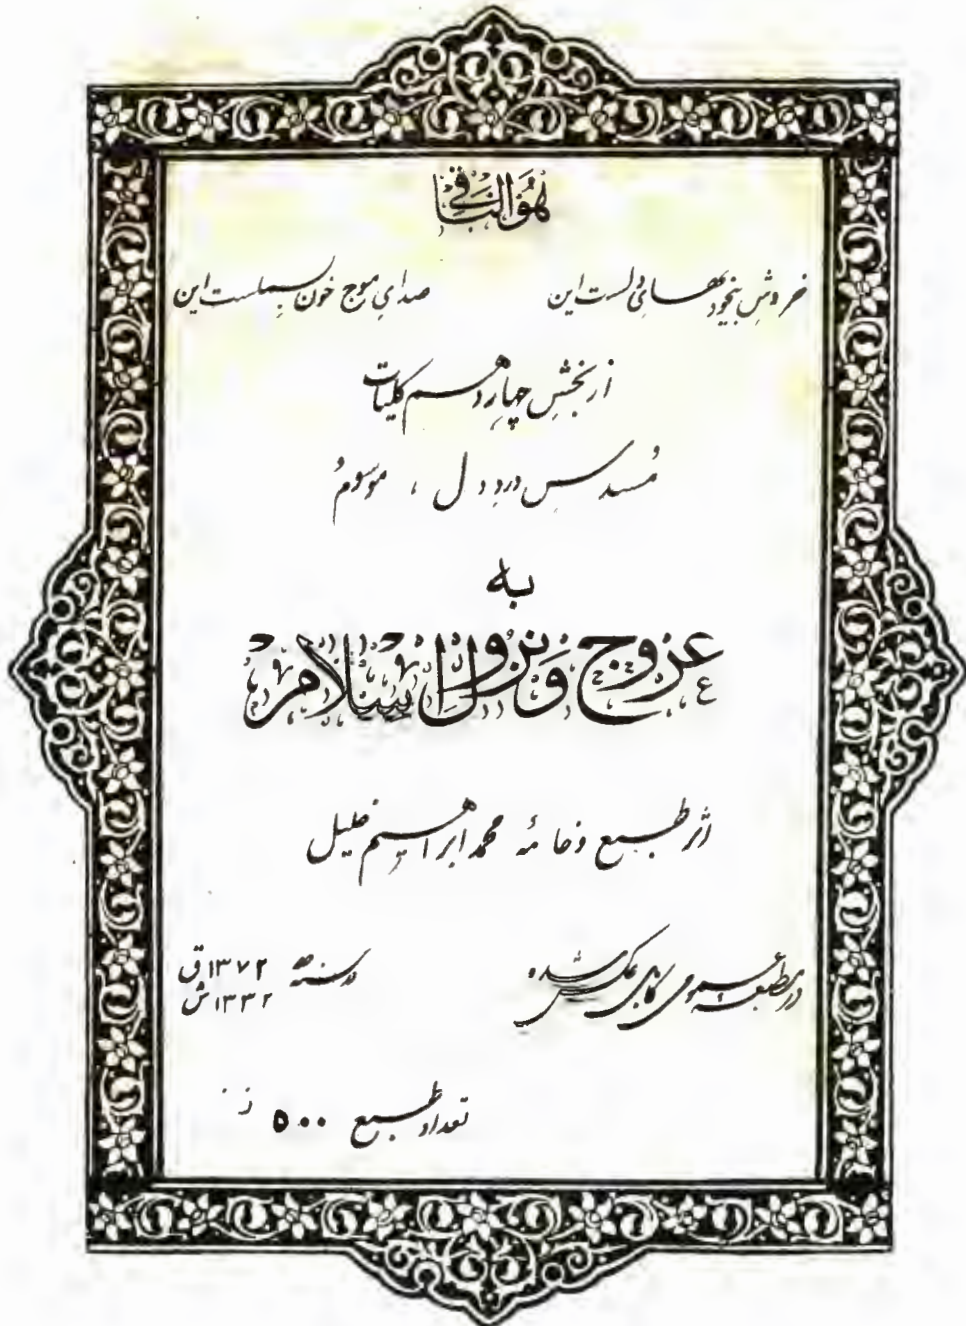 هُوَ الباقی
خروشِ بیخودیهای دلست این صدایِ موجِ خونِ بسملست این
از بخشِ چهاردهم کلیات
مُسدس دردِ دل ، موسوم
به
عروج و نزول اسلام
اثر طبع و خامهٔ محمد ابراهیم خلیل
در مطبعهٔ عمومی کابل عکس شده در سنه ۱۳۷۲ ق
۱۳۳۲ ش
تعداد طبع ۵۰۰